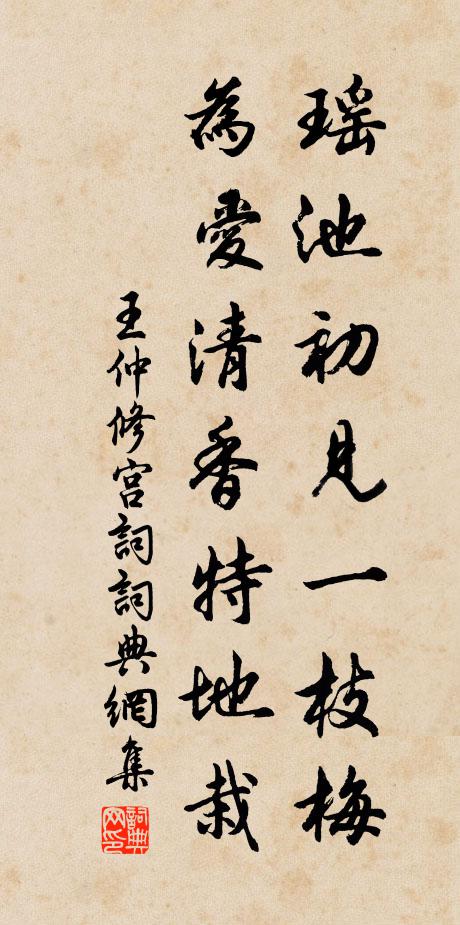 瑶池初見一枝梅
為愛清香特地栽
王仲修宮詞詞典網集
詞典
网印